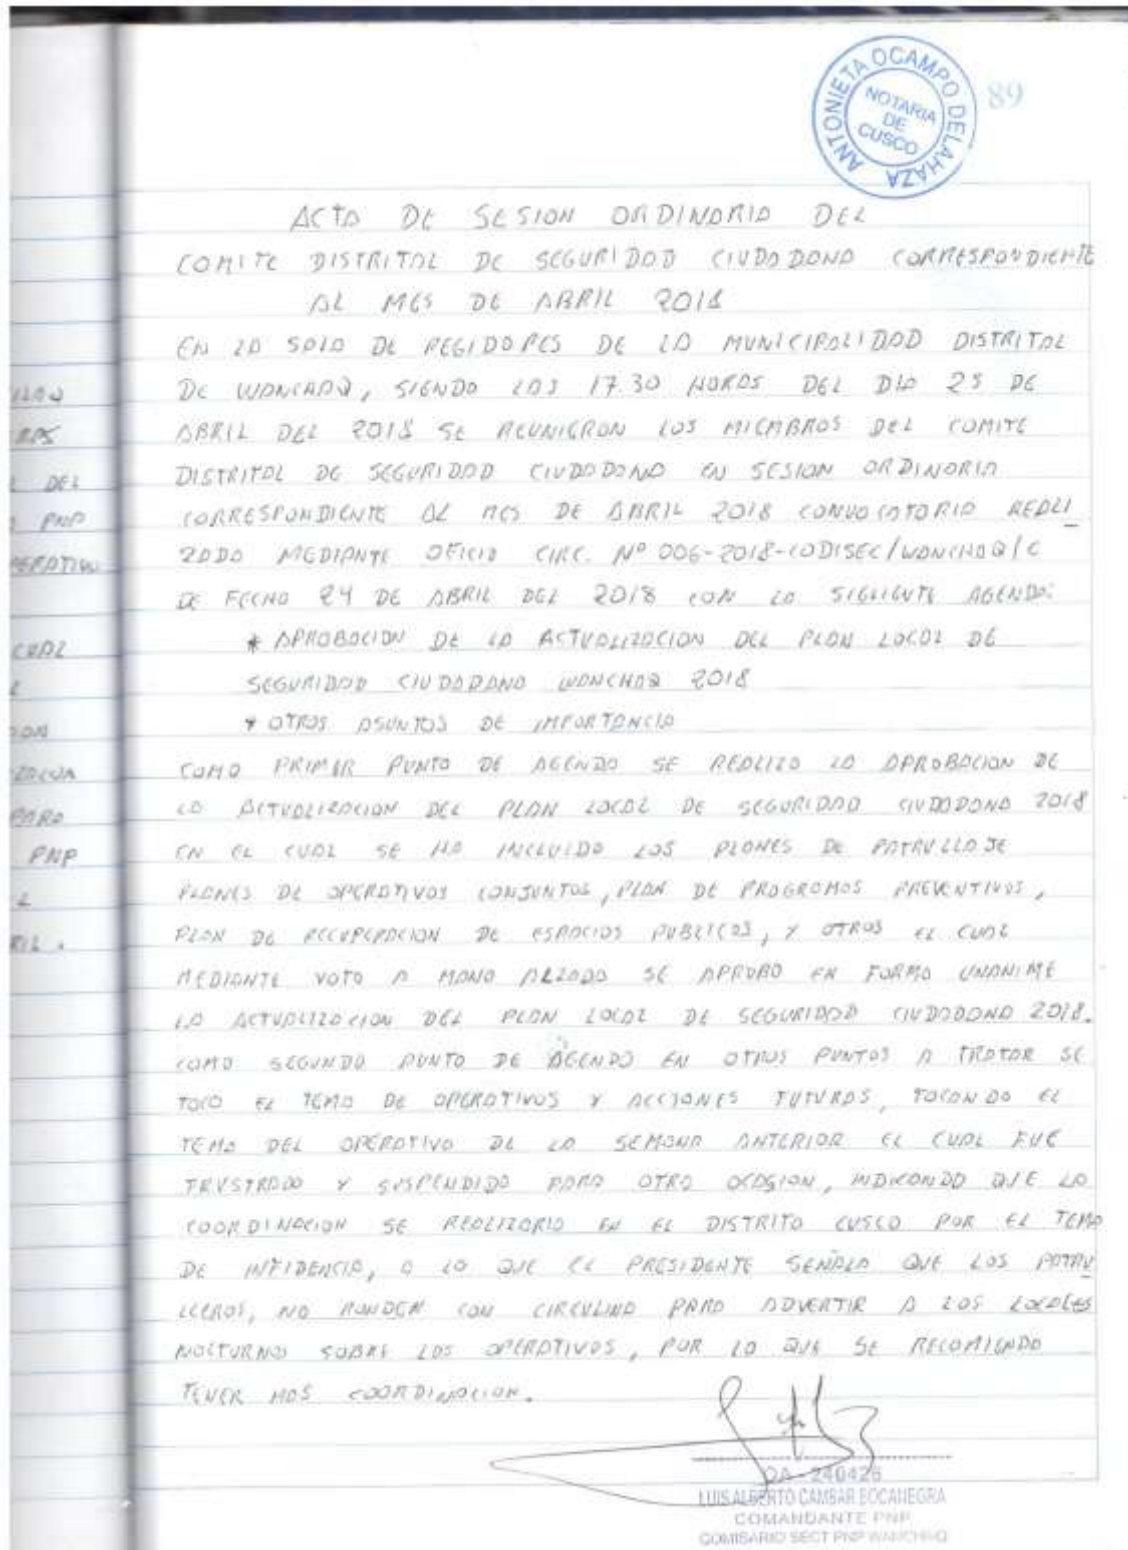 ANTONIETA OCAMPO DELAHAZA
NOTARIA
DE
CUSCO
89
ACTA DE SESION ORDINARIA DEL
COMITE DISTRITAL DE SEGURIDAD CIUDADANA CORRESPONDIENTE
AL MES DE ABRIL 2018
EN LA SALA DE REGIDORES DE LA MUNICIPALIDAD DISTRITAL
DE WANCHAQ, SIENDO LAS 17.30 HORAS DEL DIA 25 DE
ABRIL DEL 2018 SE REUNIERON LOS MIEMBROS DEL COMITE
DISTRITAL DE SEGURIDAD CIUDADANA EN SESION ORDINARIA
CORRESPONDIENTE AL MES DE ABRIL 2018 CONVOCATORIA REALI
ZADA MEDIANTE OFICIO CIRC. Nº 006-2018-CODISEC/WANCHAQ/C
DE FECHA 24 DE ABRIL DEL 2018 CON LA SIGUIENTE AGENDA:
* APROBACION DE LA ACTUALIZACION DEL PLAN LOCAL DE
SEGURIDAD CIUDADANA WANCHAQ 2018
* OTROS ASUNTOS DE IMPORTANCIA
COMO PRIMER PUNTO DE AGENDA SE REALIZO LA APROBACION DE
LA ACTUALIZACION DEL PLAN LOCAL DE SEGURIDAD CIUDADANA 2018
EN EL CUAL SE HA INCLUIDO LOS PLANES DE PATRULLAJE
PLANES DE OPERATIVOS CONJUNTOS, PLAN DE PROGRAMAS PREVENTIVOS,
PLAN DE RECUPERACION DE ESPACIOS PUBLICOS, Y OTROS EL CUAL
MEDIANTE VOTO A MANO ALZADA SE APROBO EN FORMA UNANIME
LA ACTUALIZACION DEL PLAN LOCAL DE SEGURIDAD CIUDADANA 2018.
COMO SEGUNDO PUNTO DE AGENDA EN OTROS PUNTOS A TRATAR SE
TOCO EL TEMA DE OPERATIVOS Y ACCIONES FUTURAS, TOCANDO EL
TEMA DEL OPERATIVO DE LA SEMANA ANTERIOR EL CUAL FUE
FRUSTRADO Y SUSPENDIDO PARA OTRA OCASION, INDICANDO QUE LA
COORDINACION SE REALIZARIA EN EL DISTRITO CUSCO POR EL TEMA
DE INFIDENCIA, A LO QUE EL PRESIDENTE SEÑALA QUE LOS PATRU
LLEROS, NO RONDEN CON CIRCULINA PARA ADVERTIR A LOS LOCALES
NOCTURNOS SOBRE LOS OPERATIVOS, POR LO QUE SE RECOMIENDA
TENER MAS COORDINACION.
OA - 240426
LUIS ALBERTO CAMBAR BOCANEGRA
COMANDANTE PNP
COMISARIO SECT PNP WANCHAQ
DEL
PNP
CUAL
PARA
PNP